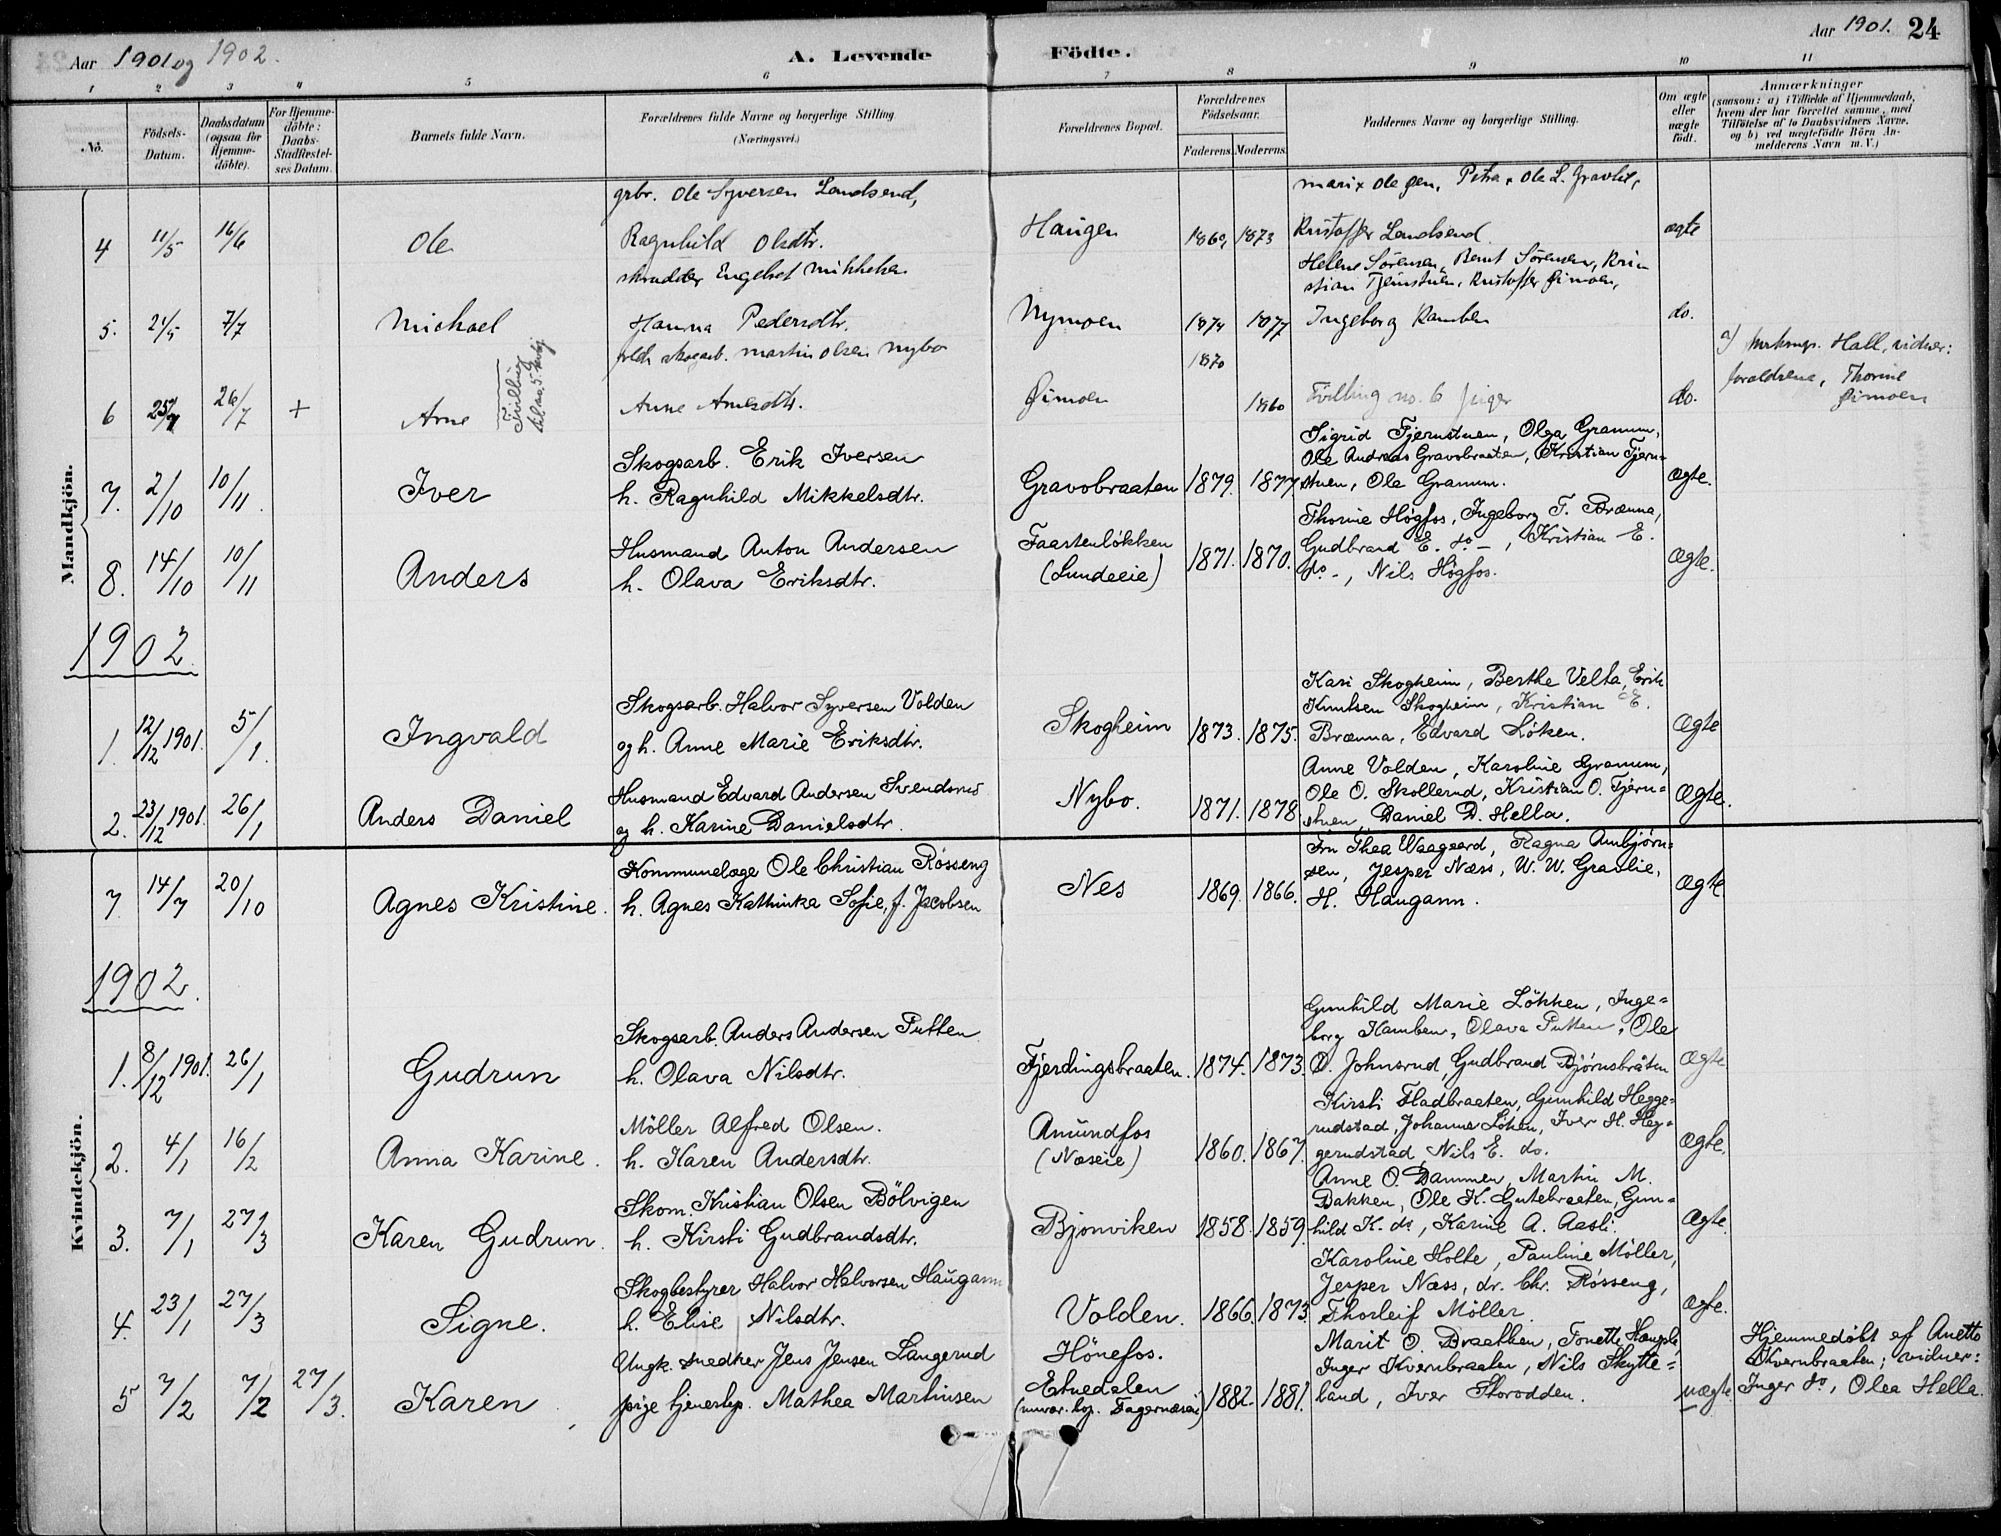 Aar 1901 og 1902.
A. Levende
Födte.
Aar 1901. 24
1 2 3 4 5 6 7 8 9 10 11
No.
Födsels-Datum.
Daabsdatum (ogsaa for Hjemme-döbte).
For Hjemme-döbte: Daabs-Stadfæstel-ses Datum.
Barnets fulde Navn.
Forældrenes fulde Navne og borgerlige Stilling (Næringsvei.)
Forældrenes Bopæl.
Forældrenes Födselsaar.
Faderens. Moderens.
Faddernes Navne og borgerlige Stilling.
Om ægte eller uægte födt.
Anmærkninger
(saasom: a) i Tilfælde af Hjemmedaab,
hvem der har forrettet samme, med
Tilföielse af to Daabsvidners Navne.
og b) ved uægtefödte Börn An-
melderens Navn m. V.)
Mandkjön.
grbr. Ole Syversen Landsend,
mari x Ole Petra x Ole L. Gravlie,
4 11/5 16/6 Ole Ragnhild Olsdtr. Haugen 1869 1873 Kristoffer Landsend ægte
Engebret Mikkelsen
Helene Sörensen, Bernt Sörensen, Kri-
stian Fjernstuen, Kristoffer Øimoen,
5. 21/5 7/7 Michael Hanna Pedersdtr. Nymoen 1874 1877 Ingeborg Ramben do.
skogarb. Martin Olsen Nybo 1870 a) Hall, vidner:
forældrene, Thorine
6 25/7 26/7 + Arne Tvilling Anne Arnesdtr. Øimoen 1860 Tvilling no. 6 piger do. Øimoen
Sigrid Fjernstuen, Olga Granum,
Skogsarb. Erik Iversen Ole Andreas Gravobraaten, Kristian Fjern-
7. 2/10 10/11. Iver h. Ragnhild Mikkelsdtr. Gravobraaten 1879. 1877 stuen, Ole Granum. Ægte.
Thorine Högfos, Ingeborg T. Brænna,
Husmand Anton Andersen Faastenlökken Gudbrand E. do -, Kristian E.
8. 14/10 10/11 Anders h. Olava Eriksdtr. (Lundeeie) 1871. 1870. do -, Nils Högfos. Ægte.
1902
Kari Skogheim, Berthe Velta, Erik
Skogsarb. Halvor Syversen Volden Knutsen Skogheim, Kristian E.
1. 12/12 1901. 5/1. Ingvald og h. Anne Marie Eriksdtr. Skogheim 1873. 1875. Brænna, Edvard Löken. Ægte
Anne Volden, Karoline Granum,
Husmand Edvard Andersen Svendsrud Ole O. Skollerud, Kristian O. Fjern-
2. 23/12 1901. 26/1 Anders Daniel og h. Karine Danielsdtr. Nybo. 1871. 1878. stuen Daniel D. Hella. Ægte.
Kvindekjön.
Fru Thea Waagaard, Ragna Arnbjörn-
Kommunelæge Ole Christian Rösseng sen, Jesper Næss, W. W. Gravlie,
7 14/7 20/10 Agnes Kristine. h. Agnes Kathinka Sofie, f. Jacobsen Nes 1869. 1866. H. Haugann. Ægte
1902.
Gunhild Marie Lökken, Inge-
Skogsarb. Anders Andersen Putten borg Hamben, Olava Putten, Ole
1. 8/12 1901. 26/1 Gudrun h. Olava Nilsdtr. Fjerdingsbraaten. 1874. 1873. O. Johnsrud, Gudbrand Björnsbråten Ægte
Kirsti Fladbraaten, Gunhild Hegge-
Möller Alfred Olsen. Amundfos rudstad, Johanne Löken, Iver H. Heg-
2. 4/1 16/2 Anna Karine. h. Karen Andersdtr. (Næseie) 1860. 1867. gerudstad Nils E. do. Ægte.
Anne O. Dammen, Martin M.
Skom. Kristian Olsen Bölvigen Bakken, Ole K. Gutebraaten, Gun-
3. 7/1 27/3 Karen Gudrun. h. Kirsti Gudbrandsdtr. Bjonviken 1858. 1859. hild K. do, Karine A. Aasli. Ægte.
Karoline Holte, Pauline Möller,
Skogbestyrer Halvor Halvorsen Haugann Jesper Næss, dr. Chr. Rösseng,
4. 23/1 27/3 Signe. h. Elise Nilsdtr. Volden. 1866. 1873. Thorleif Möller. Ægte.
Marit O. Braathen, Tonette Haugli, Hjemmedöbt af Anette
Ungk. snedker Jens Jensen Langerud Hönefos. Inger Kvernbraaten, Nils Skytte- Kvernbraaten; vidner:
5 7/2 7/2 27/3. Karen pige tjenestep. Mathea Martinsen Etnedalen 1882. 1881. land, Iver Storodden. uægte. Inger do, Olea Hella.
(nuvær. bop. Fagernæseie)